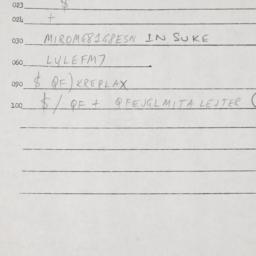 023 $
026 +
030 MIROM68168ESN IN SUKE
060 LYLEFM7
090 $ QF)KREPLAX
100 $/ QF + QFEJGLMITA LESTER (